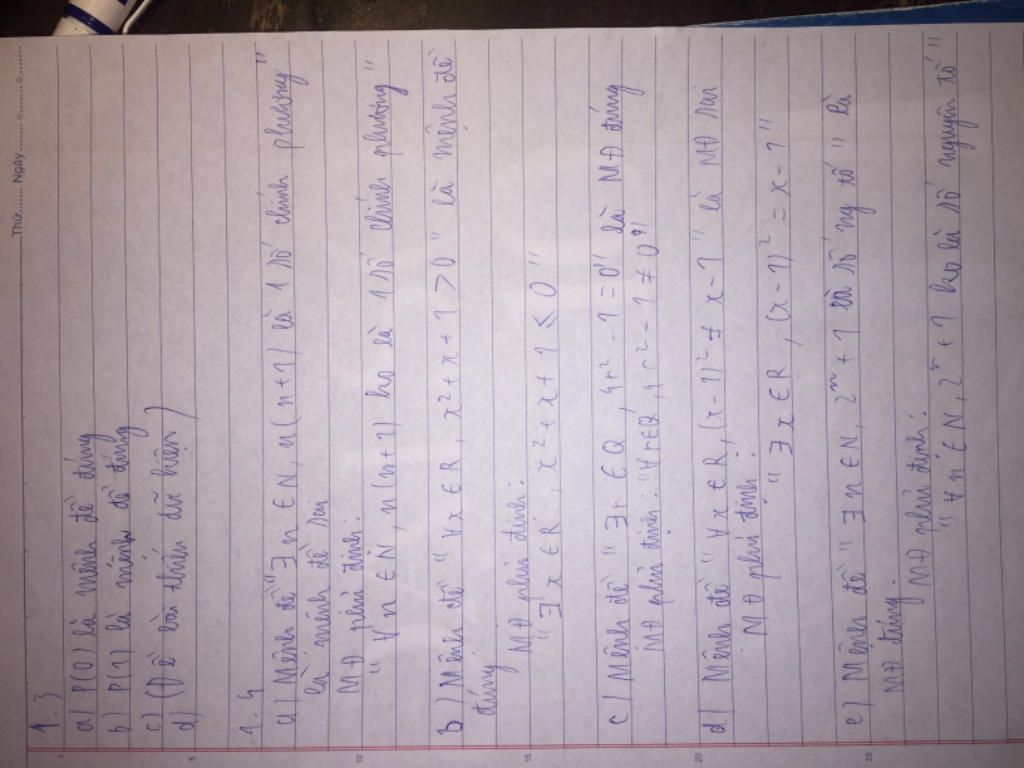 Thứ....... Ngày ........ o ........ o ........
1.3
a) P(0) là mệnh đề đúng
b) P(1) là mệnh đề đúng
c) (Đề bài thiếu dữ kiện)
d)
1.4
a) Mệnh đề "∃n ∈ N, n(n+1) là 1 số chính phương"
là mệnh đề sai.
MĐ phủ định:
"∀n ∈ N, n(n+1) ko là 1 số chính phương"
b) Mệnh đề "∀x ∈ R, x² + x + 1 > 0" là mệnh đề
đúng
MĐ phủ định:
"∃x ∈ R, x² + x + 1 ≤ 0"
c) Mệnh đề "∃r ∈ Q, 4r² - 1 = 0" là MĐ đúng
MĐ phủ định: "∀r ∈ Q, 4r² - 1 ≠ 0"
d) Mệnh đề "∀x ∈ R, (x-1)² ≠ x-1" là MĐ sai
MĐ phủ định:
"∃x ∈ R, (x-1)² = x-1"
e) Mệnh đề "∃n ∈ N, 2ⁿ + 1 là số ng tố" là
MĐ đúng.
MĐ phủ định:
"∀n ∈ N, 2ⁿ + 1 ko là số nguyên tố"
1
5
10
15
20
25